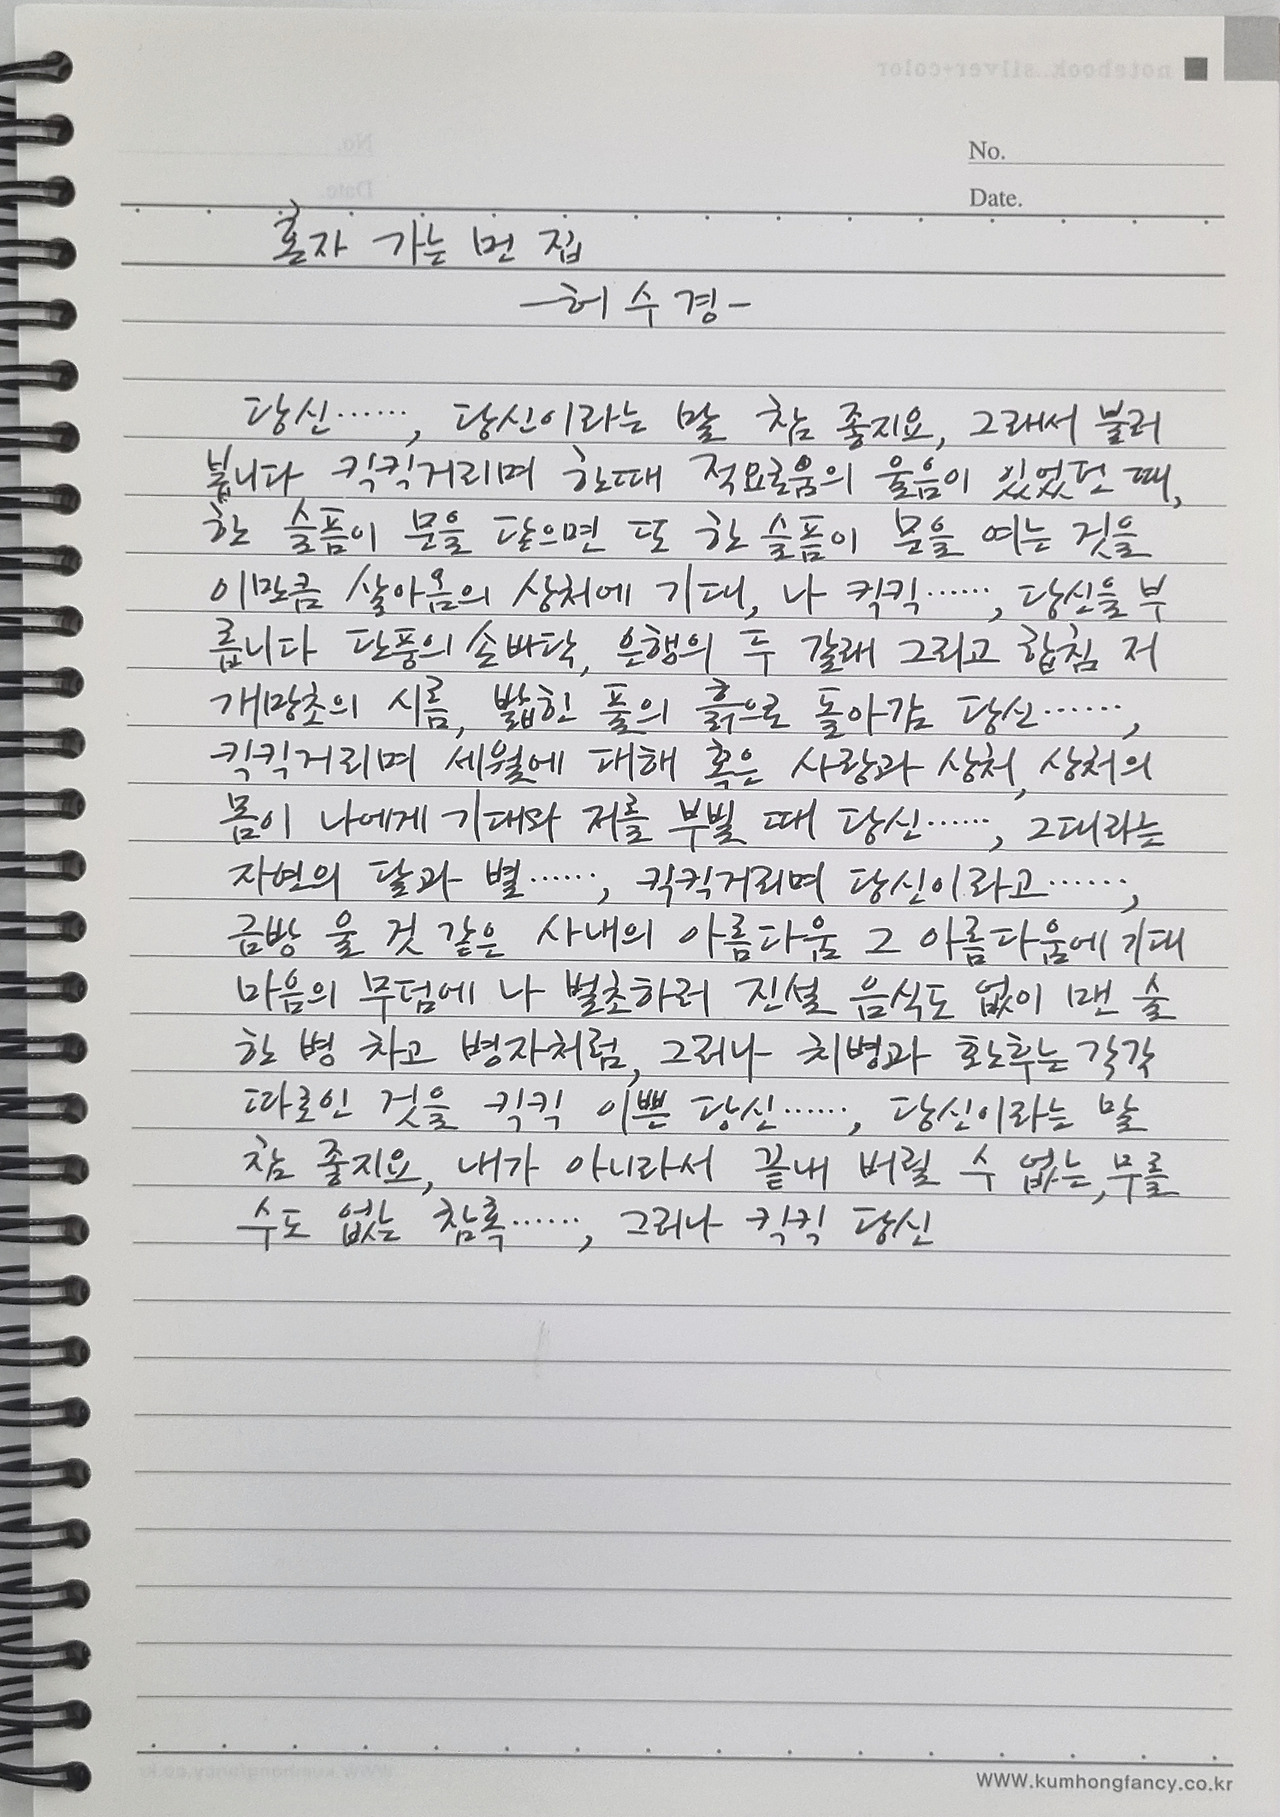 notebook silver+color
No.
Date.
혼자 가는 먼 집
-허수경-
당신……, 당신이라는 말 참 좋지요, 그래서 불러
봅니다 킥킥거리며 한때 적요로움의 울음이 있었던 때,
한 슬픔이 문을 닫으면 또 한 슬픔이 문을 여는 것을
이만큼 살아옴의 상처에 기대, 나 킥킥……, 당신을 부
릅니다 단풍의 손바닥, 은행의 두 갈래 그리고 합침 저
개망초의 시름, 밟힌 풀의 흙으로 돌아감 당신……,
킥킥거리며 세월에 대해 혹은 사랑과 상처, 상처의
몸이 나에게 기대와 저를 부빌 때 당신……, 그대라는
자연의 달과 별……, 킥킥거리며 당신이라고……,
금방 울 것 같은 사내의 아름다움 그 아름다움에 기대
마음의 무덤에 나 벌초하러 진설 음식도 없이 맨 술
한 병 차고 병자처럼, 그러나 치병과 환후는 각각
따로인 것을 킥킥 이쁜 당신……, 당신이라는 말
참 좋지요, 내가 아니라서 끝내 버릴 수 없는, 무를
수도 없는 참혹……, 그러나 킥킥 당신
WWW.kumhongfancy.co.kr